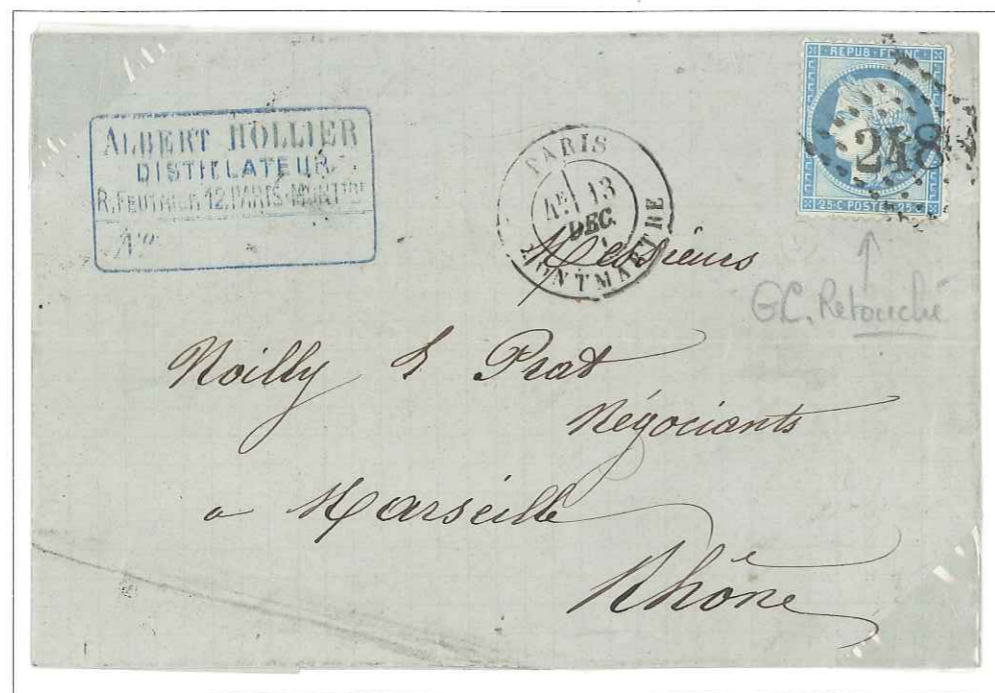 ALBERT HOLLIER
DISTILLATEUR
R. FEUTRIER, 12, PARIS-MONTTRE
No
PARIS
4E 13
DEC.
MONTMARTRE
REPUB·FRANC·
248
25·C·POSTES·25·C
GC. Retouché
Messieurs
Noilly & Prat
Négociants
a Marseille
Rhône